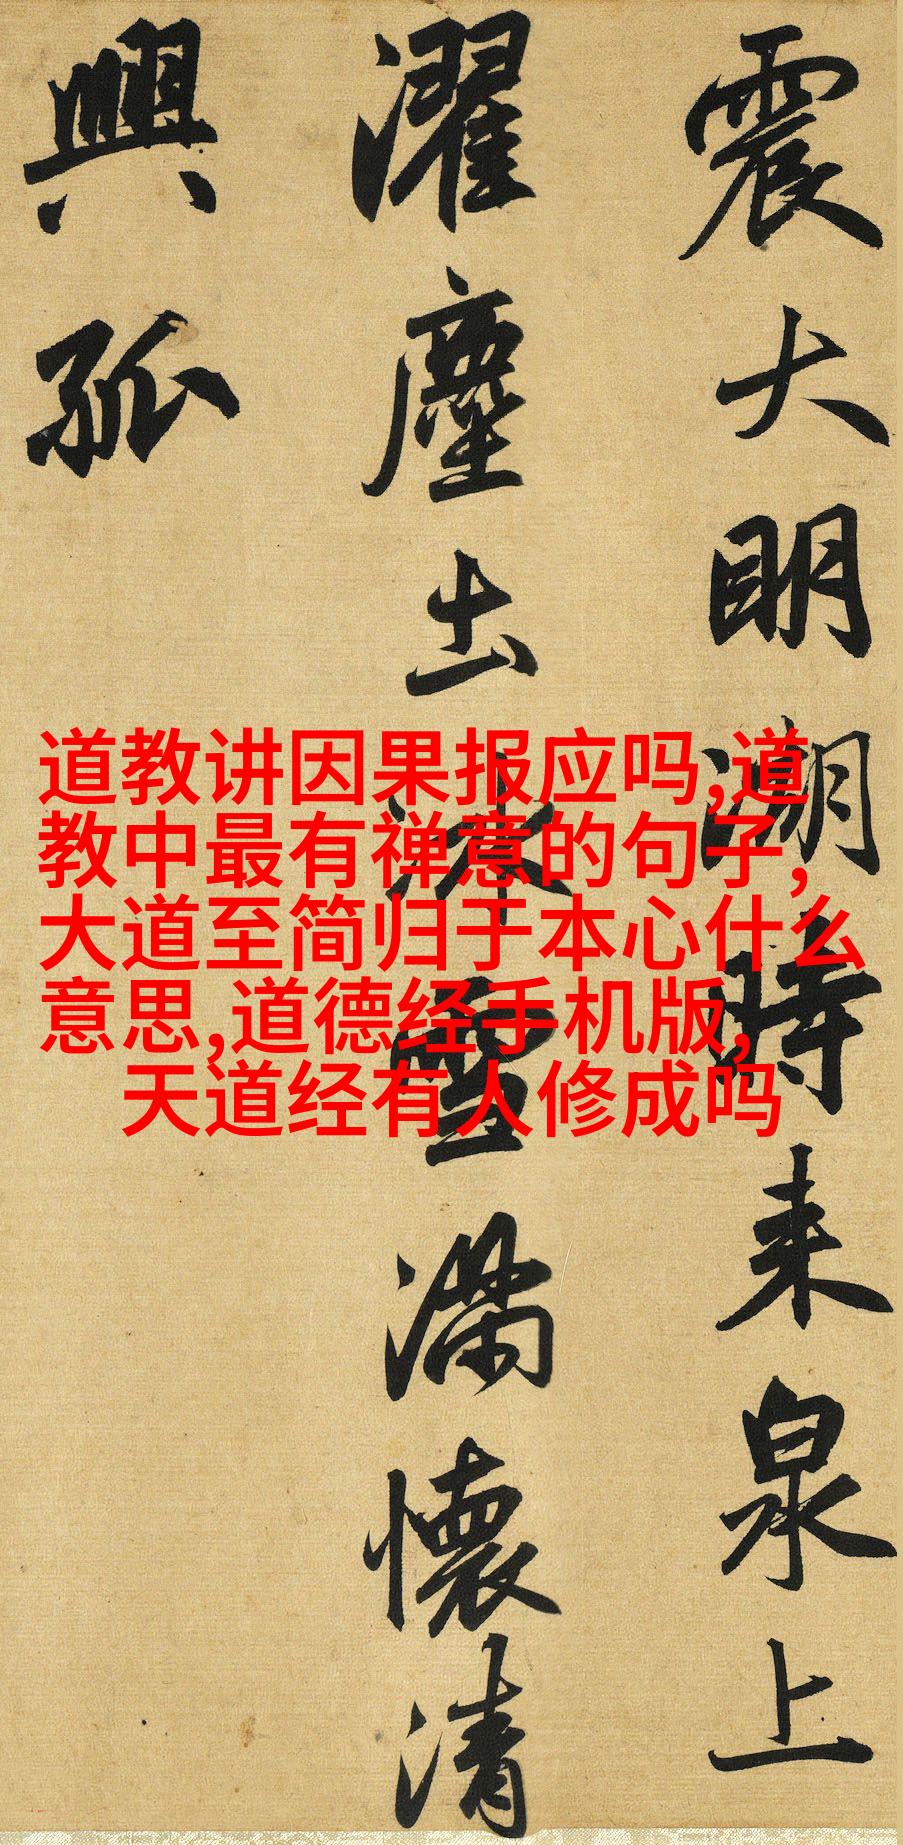 震大明湖時来泉上
濯塵出冰雪满懷清
興孤
道教讲因果报应吗,道
教中最有禅意的句子,
大道至简归于本心什么
意思,道德经手机版,
天道经有人修成吗